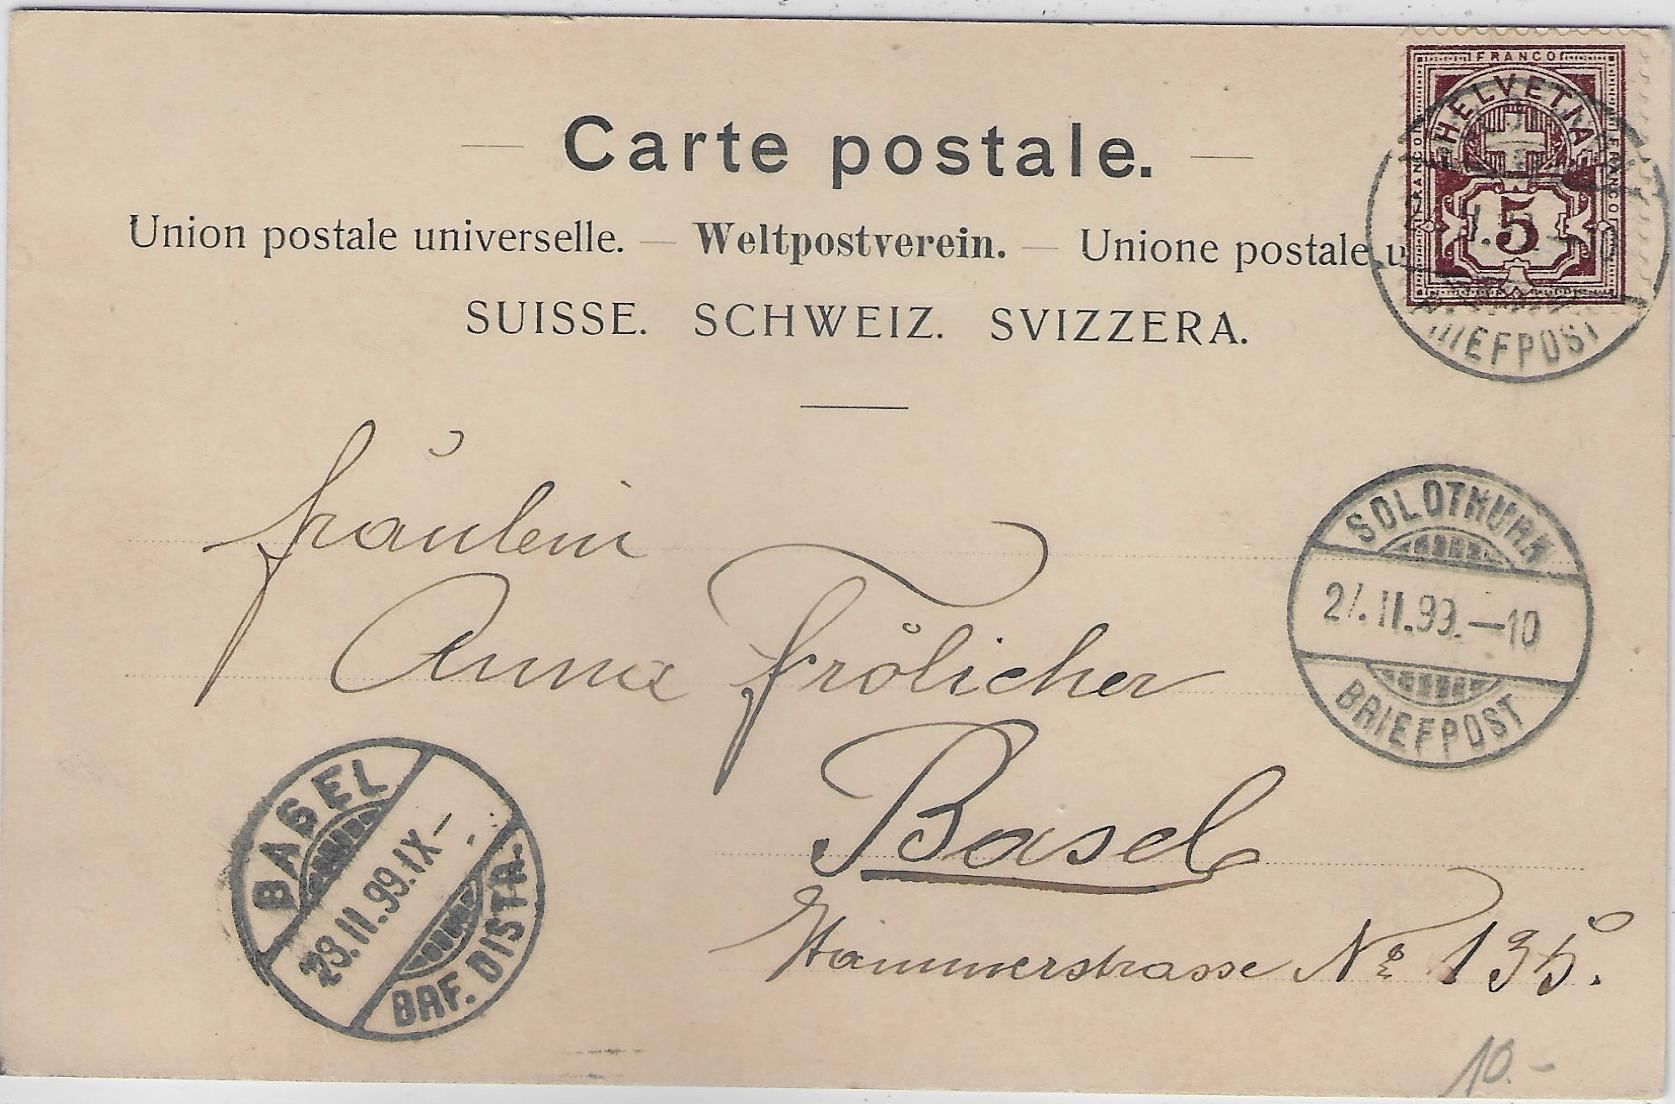 FRANCO
HELVETIA
FRANCO
FRANCO
5
BRIEFPOST
Carte postale.
Union postale universelle. — Weltpostverein. — Unione postale u
SUISSE. SCHWEIZ. SVIZZERA.
Fräulein
Anna Frölicher
Basel
Hammerstrasse No 135.
SOLOTHURN
27.II.99.—10
BRIEFPOST
BASEL
28.II.99.IX—
BRF. DISTR.
10.-